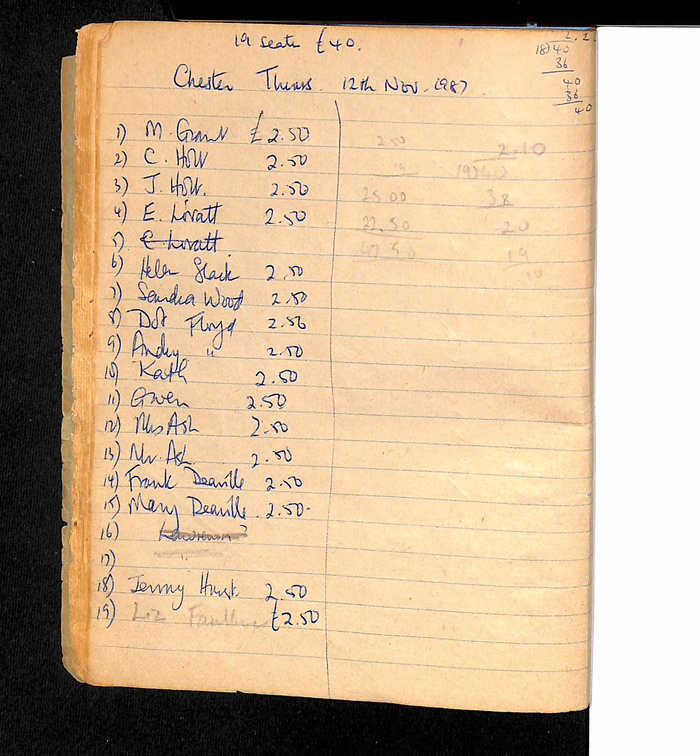 19 seats £40.
2.2.
18)40
36
40
36
40
Chester Thurs. 12th Nov. 1987
1) M. Grant £2.50
2) C. Holt 2.50
3) J. Holt. 2.50
4) E. Lovatt 2.50
5) E. Lovatt
6) Helen Slack 2.50
7) Sandra Wood 2.50
8) Dot Floyd 2.50
9) Andy " 2.50
10) Kath 2.50
11) Gwen 2.50
12) Mrs Ash 2.50
13) Mr. Ash 2.50
14) Frank Deaville 2.50
15) Mary Deaville 2.50
16) Lawrence?
17)
18) Jenny Hurst 2.50
19) Liz Faulkner £2.50
2.50
25.00
22.50
47.50
2.10
19)40
38
20
19
10